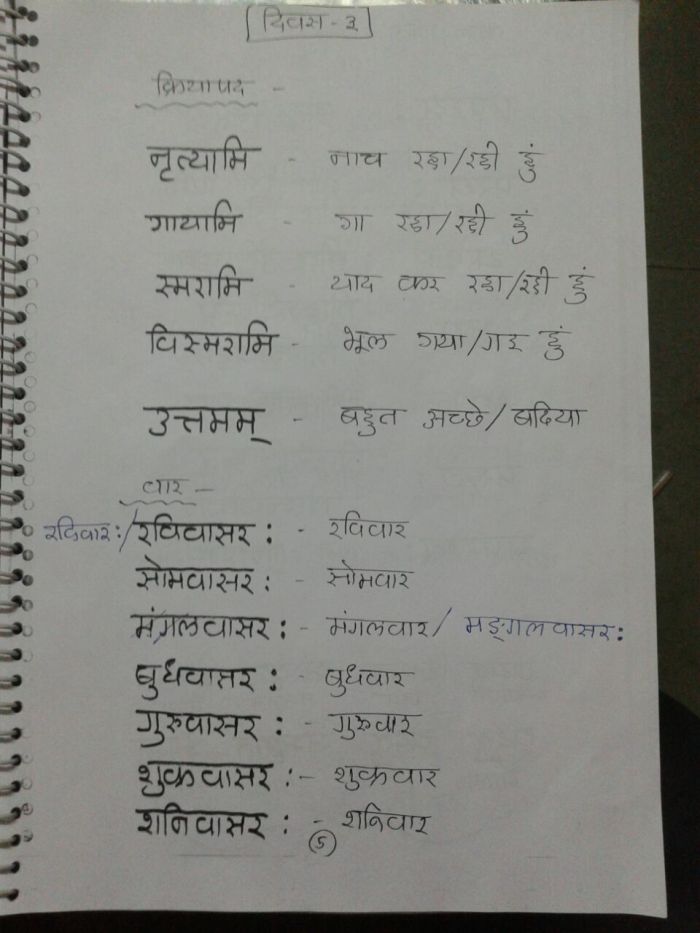 दिवस - ३
क्रियापद -
नृत्यामि - नाच रहा/रही हुं
गायामि - गा रहा/रही हुं
स्मरामि - याद कर रहा/रही हुं
विस्मरामि - भूल गया/गइ हुं
उत्तमम् - बहुत अच्छे/बढिया
वार -
रविवारः/रविवासरः - रविवार
सोमवासरः - सोमवार
मंगलवासरः - मंगलवार/ मङ्गलवासरः
बुधवासरः - बुधवार
गुरुवासरः - गुरुवार
शुक्रवासरः - शुक्रवार
शनिवासरः - शनिवार
5